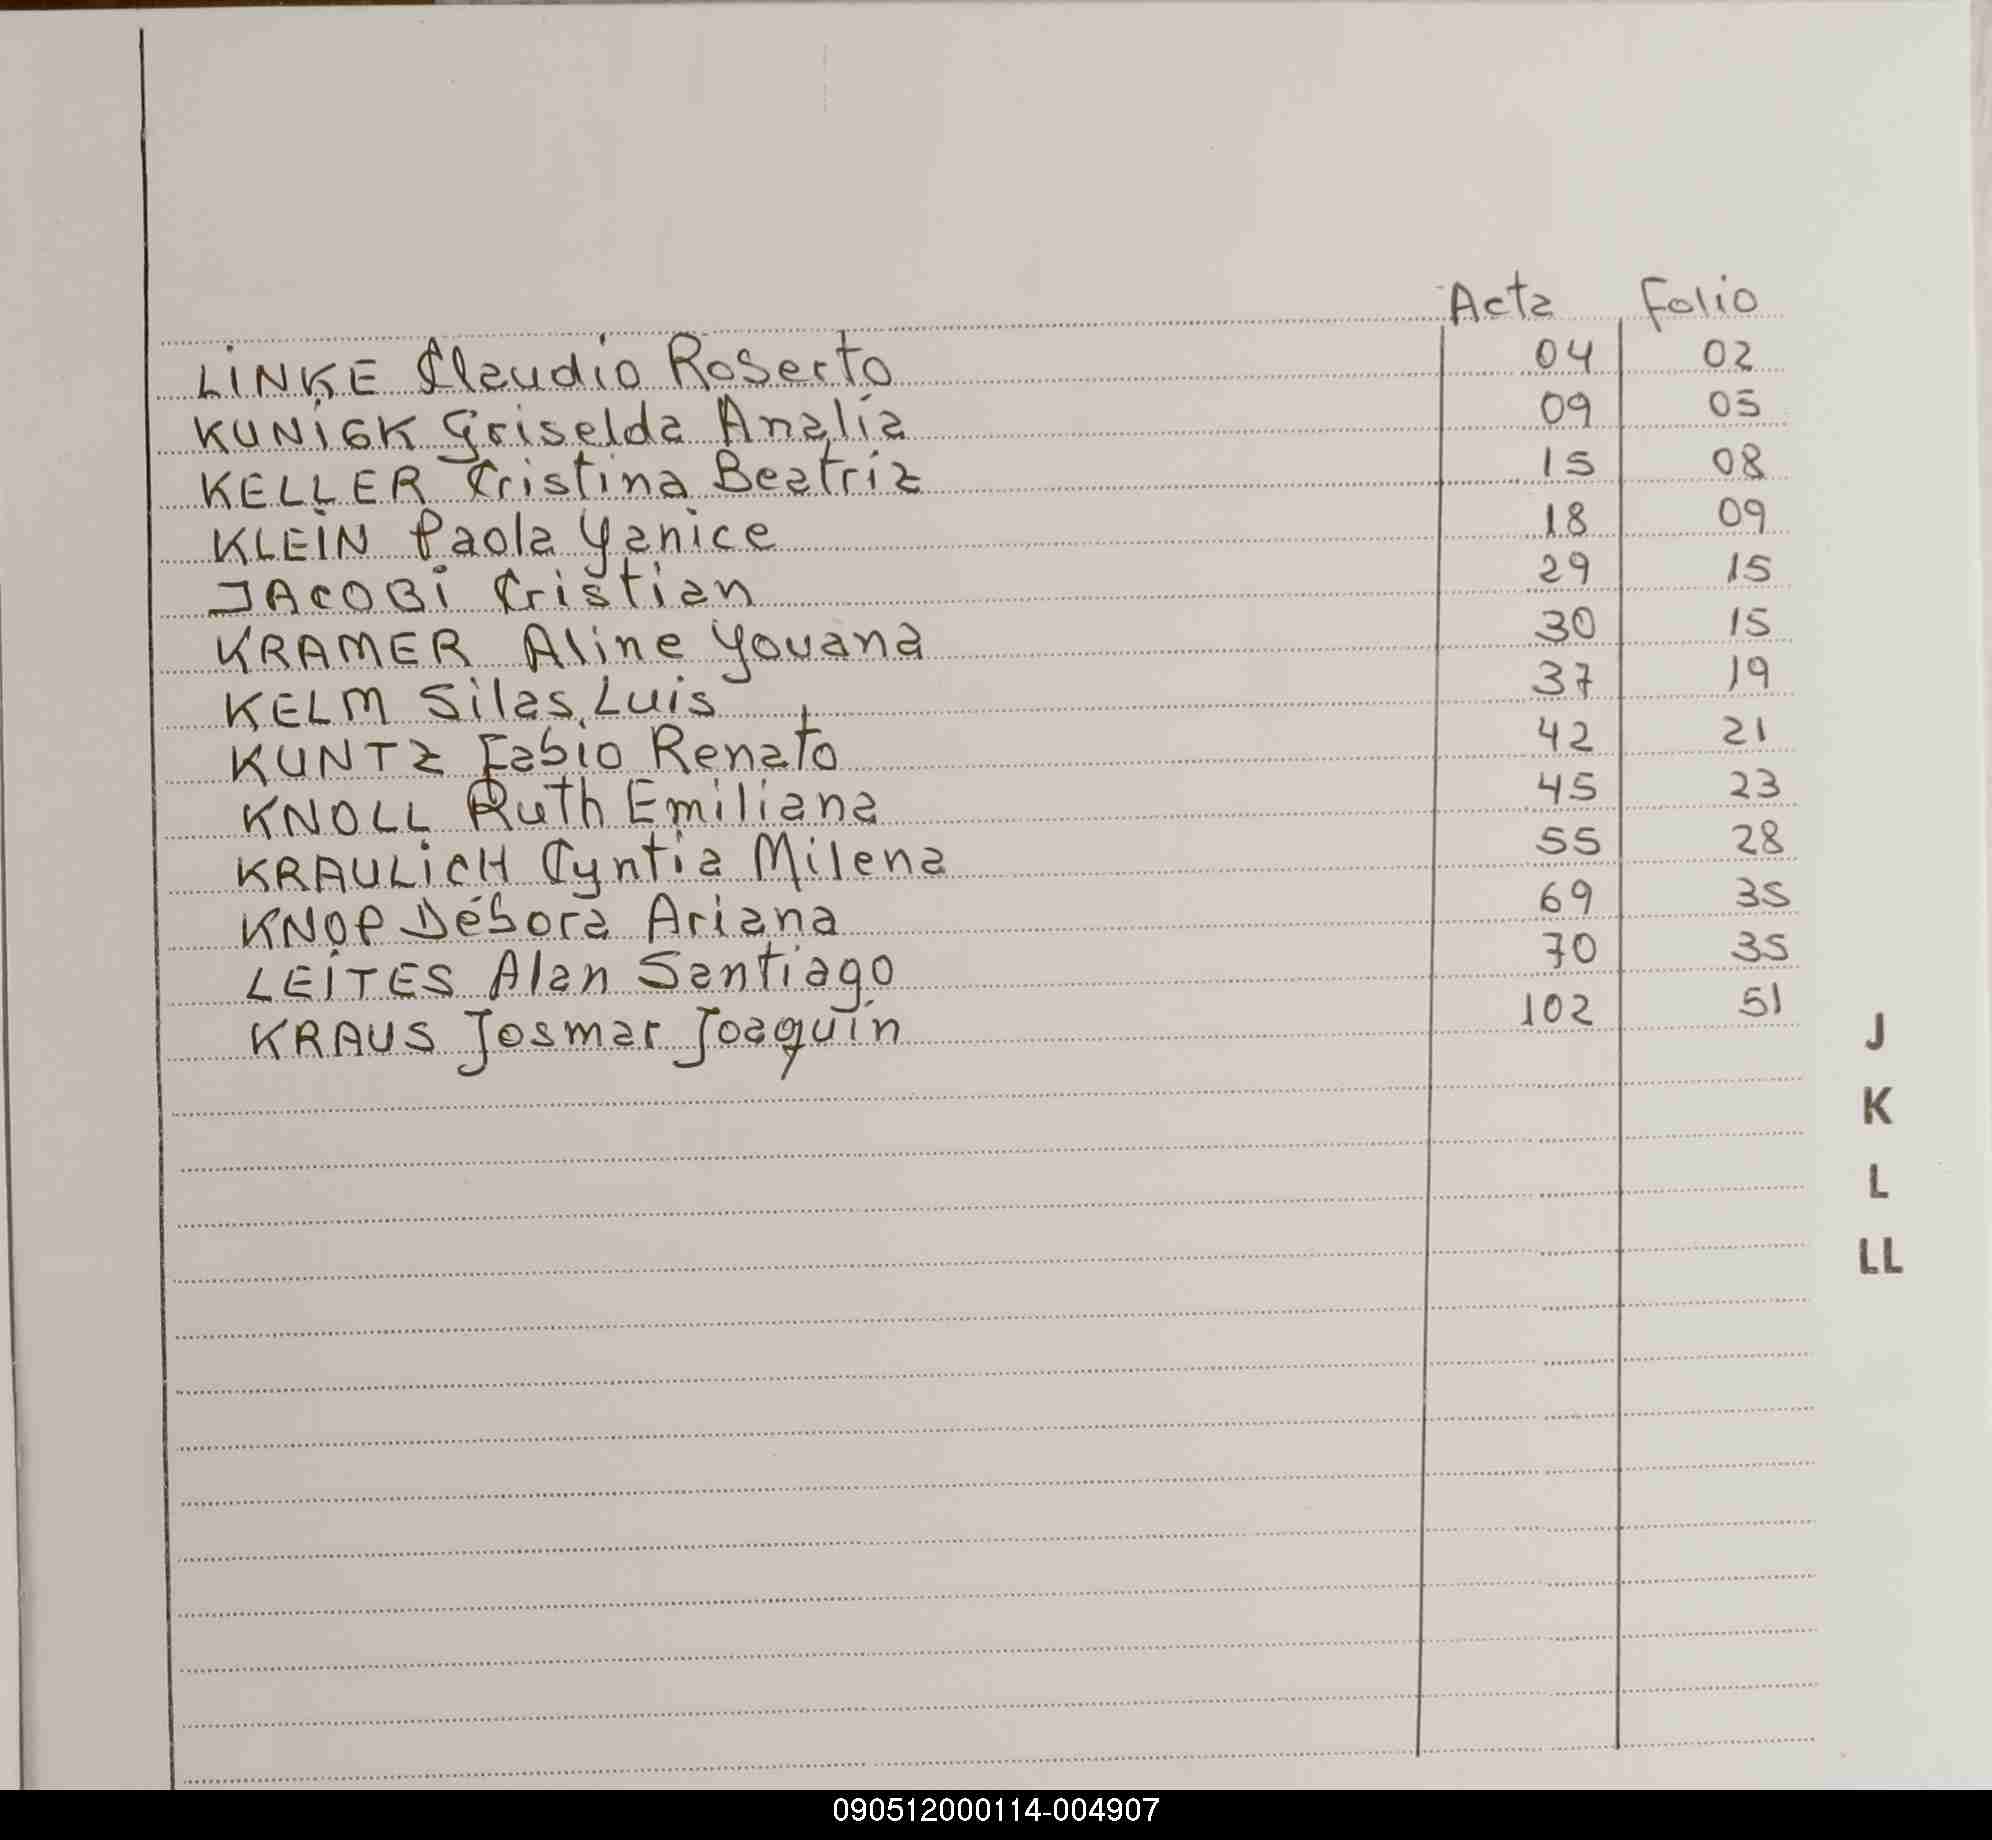 Acta Folio
LINKE Claudio Roberto 04 02
KUNIGK Griselda Analía 09 05
KELLER Cristina Beatriz 15 08
KLEIN Paola Yanice 18 09
JACOBI Cristian 29 15
KRAMER Aline Youana 30 15
KELM Silas Luis 37 19
KUNTZ Fabio Renato 42 21
KNOLL Ruth Emiliana 45 23
KRAULICH Cyntia Milena 55 28
KNOP Débora Ariana 69 35
LEITES Alan Santiago 70 35
KRAUS Josmar Joaquín 102 51
J
K
L
LL
090512000114-004907